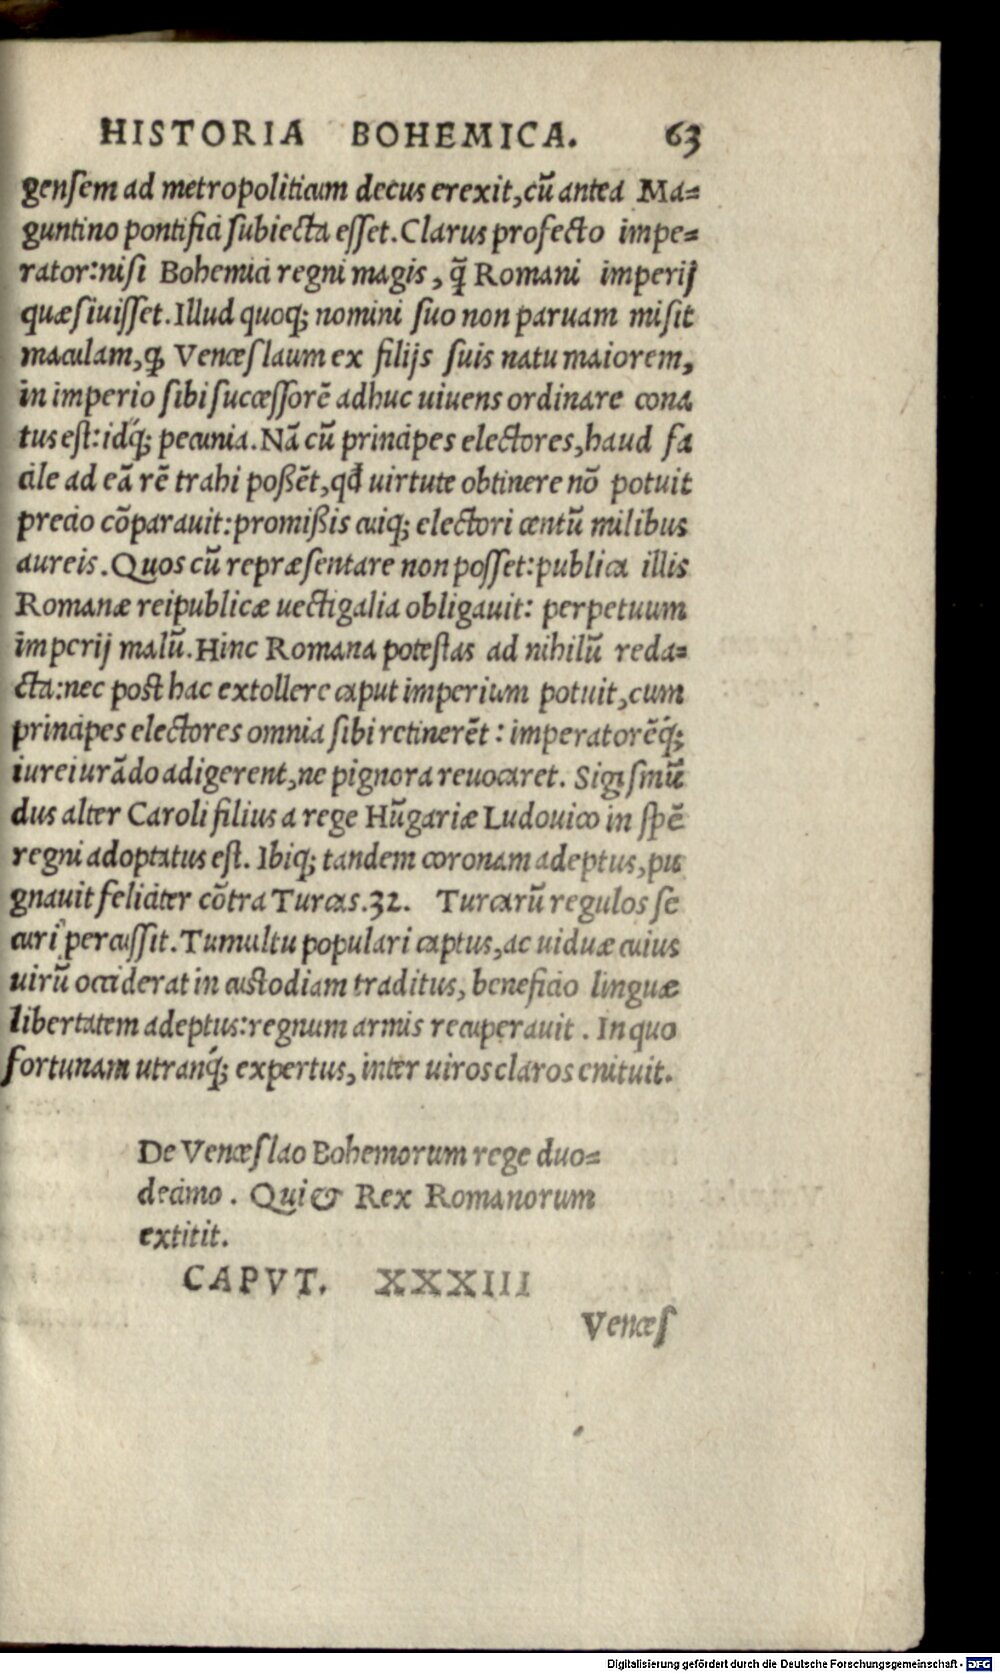 HISTORIA BOHEMICA. 63
genſem ad metropoliticum decus erexit, cũ antea Ma=
guntino pontifici ſubiecta eſſet. Clarus profecto impe=
rator: niſi Bohemici regni magis, q̃ Romani imperij
quæſiuiſſet. Illud quoq; nomini ſuo non paruam miſit
maculam, ꝙ Venceſlaum ex filijs ſuis natu maiorem,
in imperio ſibi ſucceſſorẽ adhuc uiuens ordinare cona
tus eſt: idq́; pecunia. Nã cũ principes electores, haud fa
cile ad eã rẽ trahi poßẽt, qđ uirtute obtinere nõ potuit
precio cõparauit: promißis cuiq; electori centũ milibus
aureis. Quos cũ repræſentare non poſſet: publica illis
Romanæ reipublicæ uectigalia obligauit: perpetuum
imperij malũ. Hinc Romana poteſtas ad nihilũ reda=
cta: nec poſt hac extollere caput imperium potuit, cum
principes electores omnia ſibi retinerẽt: imperatorẽq́;
iureiurãdo adigerent, ne pignora reuocaret. Sigiſmũ
dus alter Caroli filius a rege Hũgariæ Ludouico in ſpẽ
regni adoptatus eſt. Ibiq; tandem coronam adeptus, pu
gnauit feliciter cõtra Turcas. 32. Turcarũ regulos ſe
curi percuſſit. Tumultu populari captus, ac uiduæ cuius
uirũ occiderat in cuſtodiam traditus, beneficio linguæ
libertatem adeptus: regnum armis recuperauit. In quo
fortunam utranq́; expertus, inter uiros claros enituit.
De Venceſlao Bohemorum rege duo=
decimo. Qui & Rex Romanorum
extitit.
CAPVT. XXXIII
Venceſ
Digitalisierung gefördert durch die Deutsche Forschungsgemeinschaft - DFG